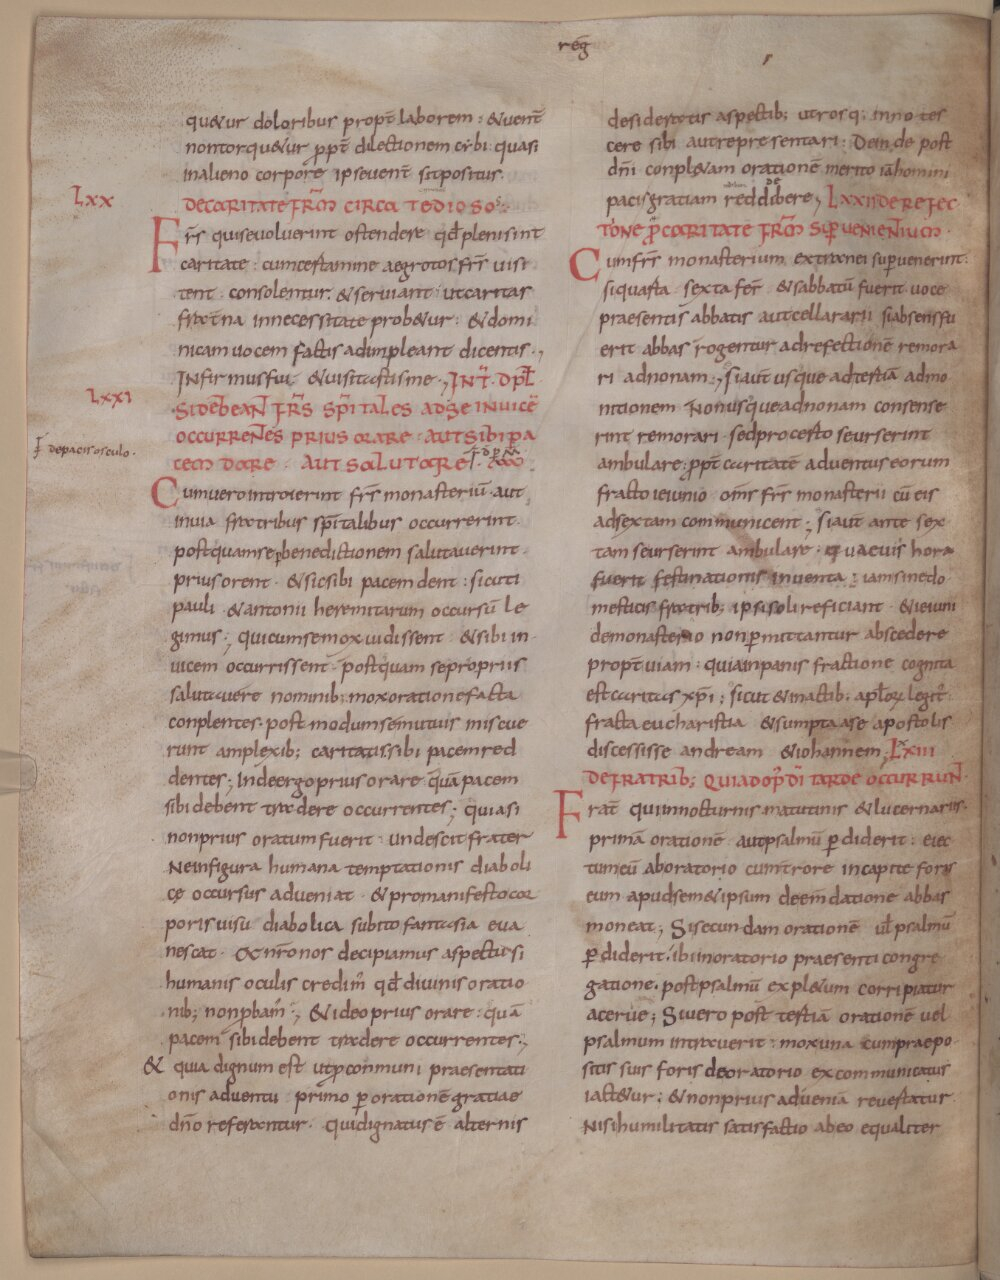 reg̅
quetur doloribus propt̅ laborem : & uent̅
nontorqu&ur ꝓpt̅ dilectionem cybi : quasi
inalieno corpore ipseuent̅ sitpositus·
Lxx
DECARITATE FRM̅ CIRCA TEDIOSOS·
Fr̅s quisevoluerint ostendere qd̅ plenisint
caritate : cumcestamine aegrotos fr̅s visi
tent · consolentur · & serviant : utcaritas
frat̅na innecessitate prob&ur : & domi
nicam vocem factis adimpleant dicentis·,
Infirmus fui & visitastis me·, INT̅· DPL̅
Lxxi
SIDEBEAN̅ FR̅S SPI̅TALES ADSE INVICE̅
OCCURREN̅ES PRIUS ORARE · AUT SIBI PA
CEM DARE · AUT SALUTARE
depacis osculo·
Cumverointroierint fr̅s monasteriu̅ · aut
invia fratribus spi̅talibus occurrerint·
postquamse benedictionem salutaverint·
priusorent · & sicsibi pacem dent : sicuti
pauli · & antonii heremitarum occursu̅ le
gimus ; quicumsemox vidissent · & sibi in
vicem occurrissent · postquam sepropriis
salutavere nominib; mox orationefacta
conplentes· post modumsemutuis miscue
runt amplexib; caritatis sibi pacem red
dentes ; Indeergoprius orare · qua̅ pacem
sibi debent tradere occurrentes ; quiasi
nonprius oratum fuerit · undescit frater
Neinfigura humana temptationis diaboli
cę occursus adveniat · & promanifesto cor
poris visu diabolica subito fantasia eva
nescat · Et nr̅o nos decipiamus aspectu si
humanis oculis credim̅ qd̅ divinis oratio
nib; nonꝓbam̅ ·, & ideo prius orare · qua̅
pacem sibi debent tradere occurrentes·,
& quia dignum est utꝓ conmuni praesentati
onis adventu primo ꝑ oratione̅ gratiae
dn̅o referantur · quidignatus e̅ alternis
desideratis aspectib; utrosq; innotes
cere sibi aut repre sentari : Dein de post
dn̅i conpl&am oratione̅ merito ia̅ homini
pacis gratiam red dibere·, LXXII DEREFEC
TIONE PRO̅ CARITATE FRM̅ SUPERVENIENTIUM·
Cumfr̅s monasterium extranei sup̅venerint·
siquarta sexta fer̅ & sabbatu̅ fuerit voce
praesentis abbatis aut cellararii si absens fu
erit abbas rogentur adrefectione̅ remora
ri adnonam·, Siaut̅ usque adtertia̅ admo
nitionem Nonusque adnonam consense
rint remorari · sedprocerto seurserint
ambulare : ꝓpt̅ caritate̅ adventus eorum
fracto ieiunio om̅s fr̅s monasterii cu̅ eis
adsextam communicent ; Siaut̅ ante sex
tam seurserint ambulare · quaevis hora
fuerit festinationis inventa ; iamsinedo
mesticis fratrib; ipsi soli reficiant · & ieiuni
demonasterio nonꝑmittantur abscedere
propt̅ viam : quiainpanis fractione cognita
est caritas xp̅i ; sicut & inactib; aplor̅ legit̅·
fracta eucharistia & sumpta ase apostolis
discessisse andream & iohannem ; LXXIII
DEFRATRIB; QUI AD OP̅ DI̅ TARDE OCCURRUN̅·
Frat̅ quiinnocturnis matutinis & lucernariis·
prima̅ oratione̅ autpsalmu̅ ꝑdiderit : eiec
tumeu̅ aboratorio cumt̅rore incapite foris
eum apudsem&ipsum deemdatione abbas
moneat ; Sisecundam oratione̅ ul̅ psalmu̅
ꝑdiderit : ibi inoratorio praesenti congre
gatione · postpsalmu̅ expl&um corripiatur
acerue ; Sivero post tertia̅ oratione̅ vel
psalmum intraverit : moxuna cumpraepo
sitis suis foris deoratorio excommunicatus
iact&ur ; & nonprius advenia̅ revertatur·
Nisi humilitatis satisfactio abeo equaliter